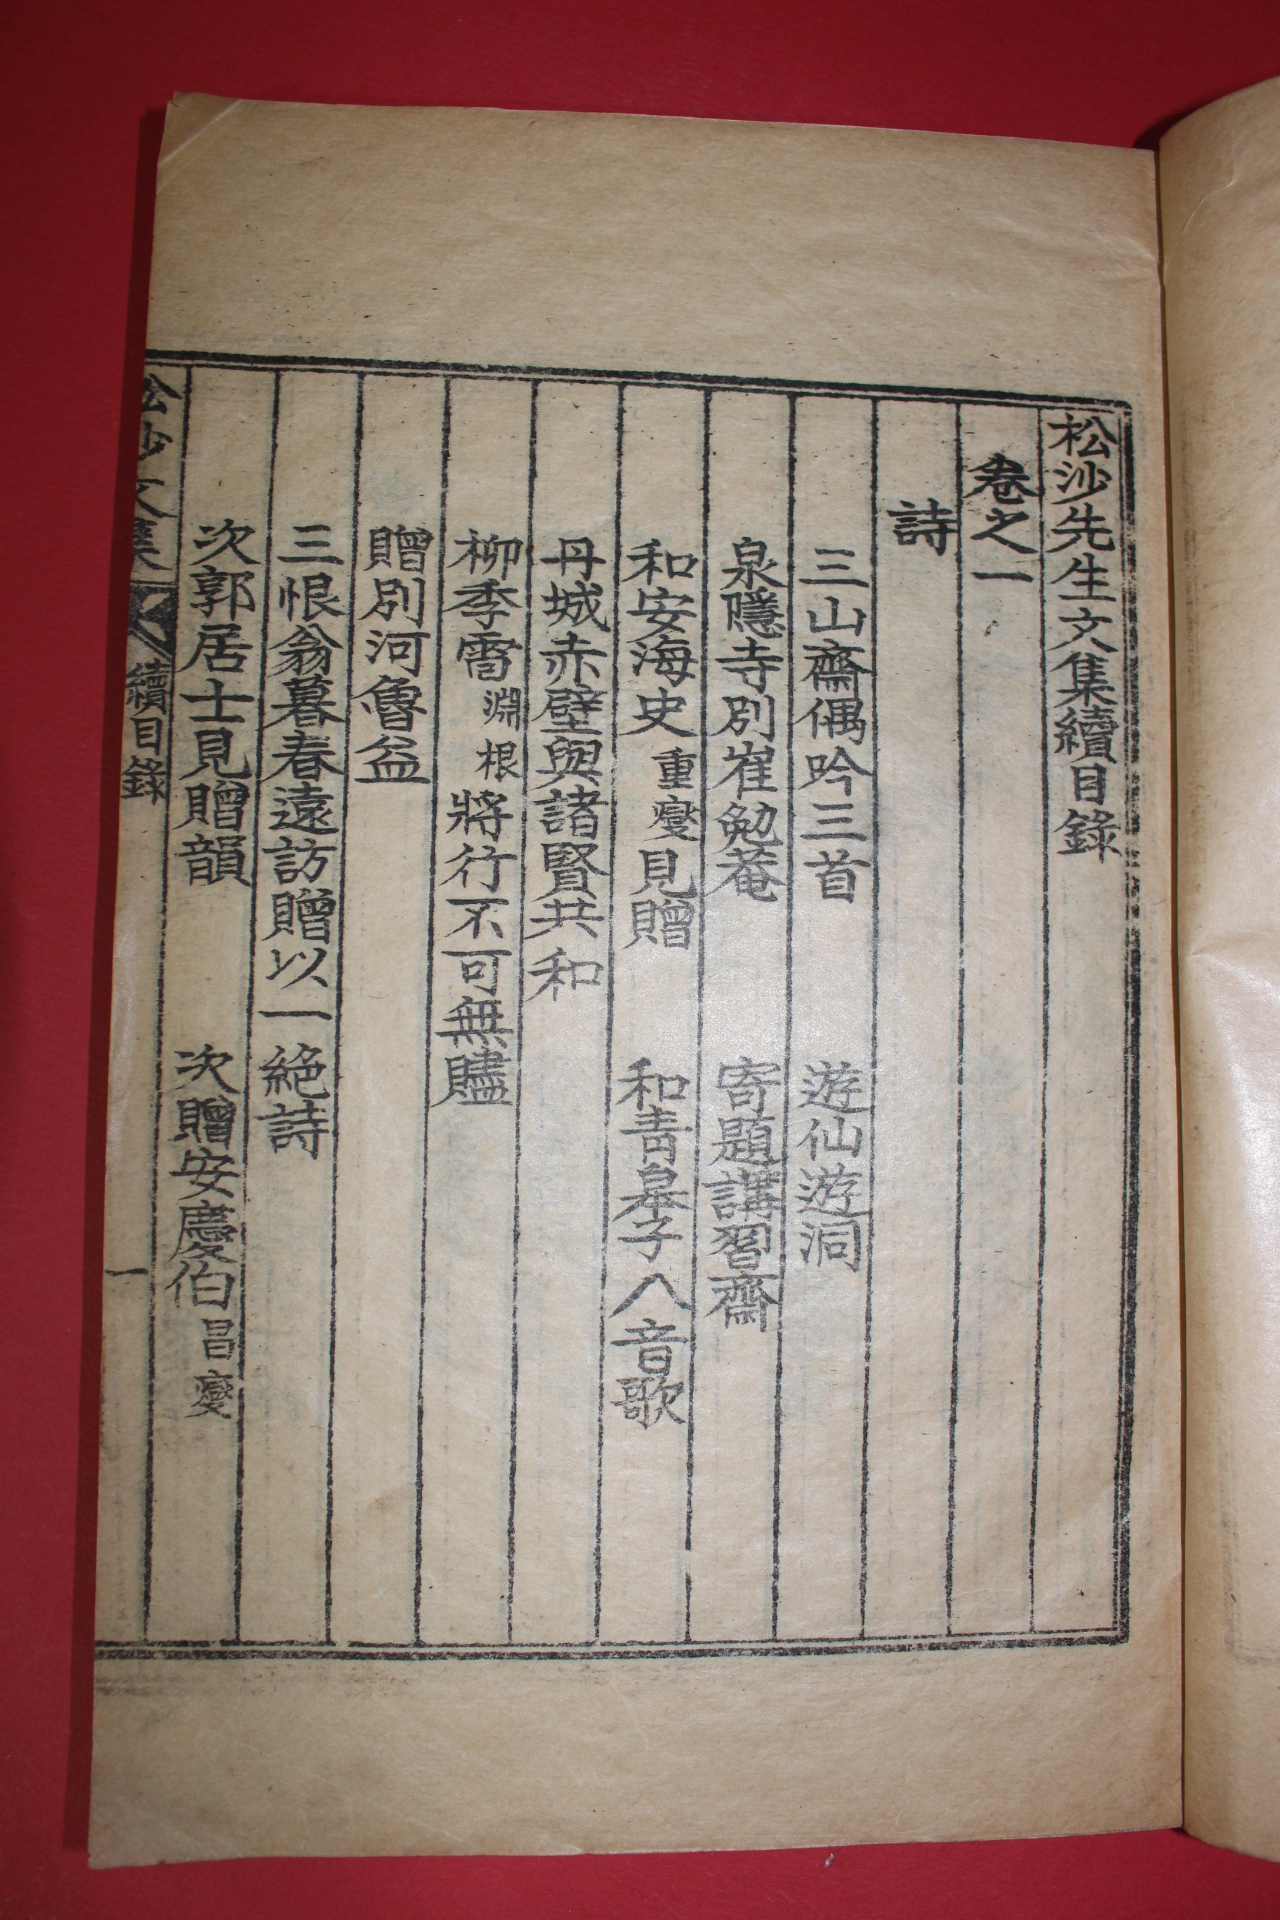 松沙先生文集續目錄
卷之一
詩
三山齋偶吟三首 遊仙遊洞
泉隱寺別崔勉菴 寄題講習齋
和安海史重燮見贈 和靑皋子八音歌
丹城赤壁與諸賢共和
柳季雷淵根將行不可無贐
贈別河魯益
三恨翁暮春遠訪贈以一絕詩
次郭居士見贈韻 次贈安慶伯昌燮
松沙文集 續目錄 一